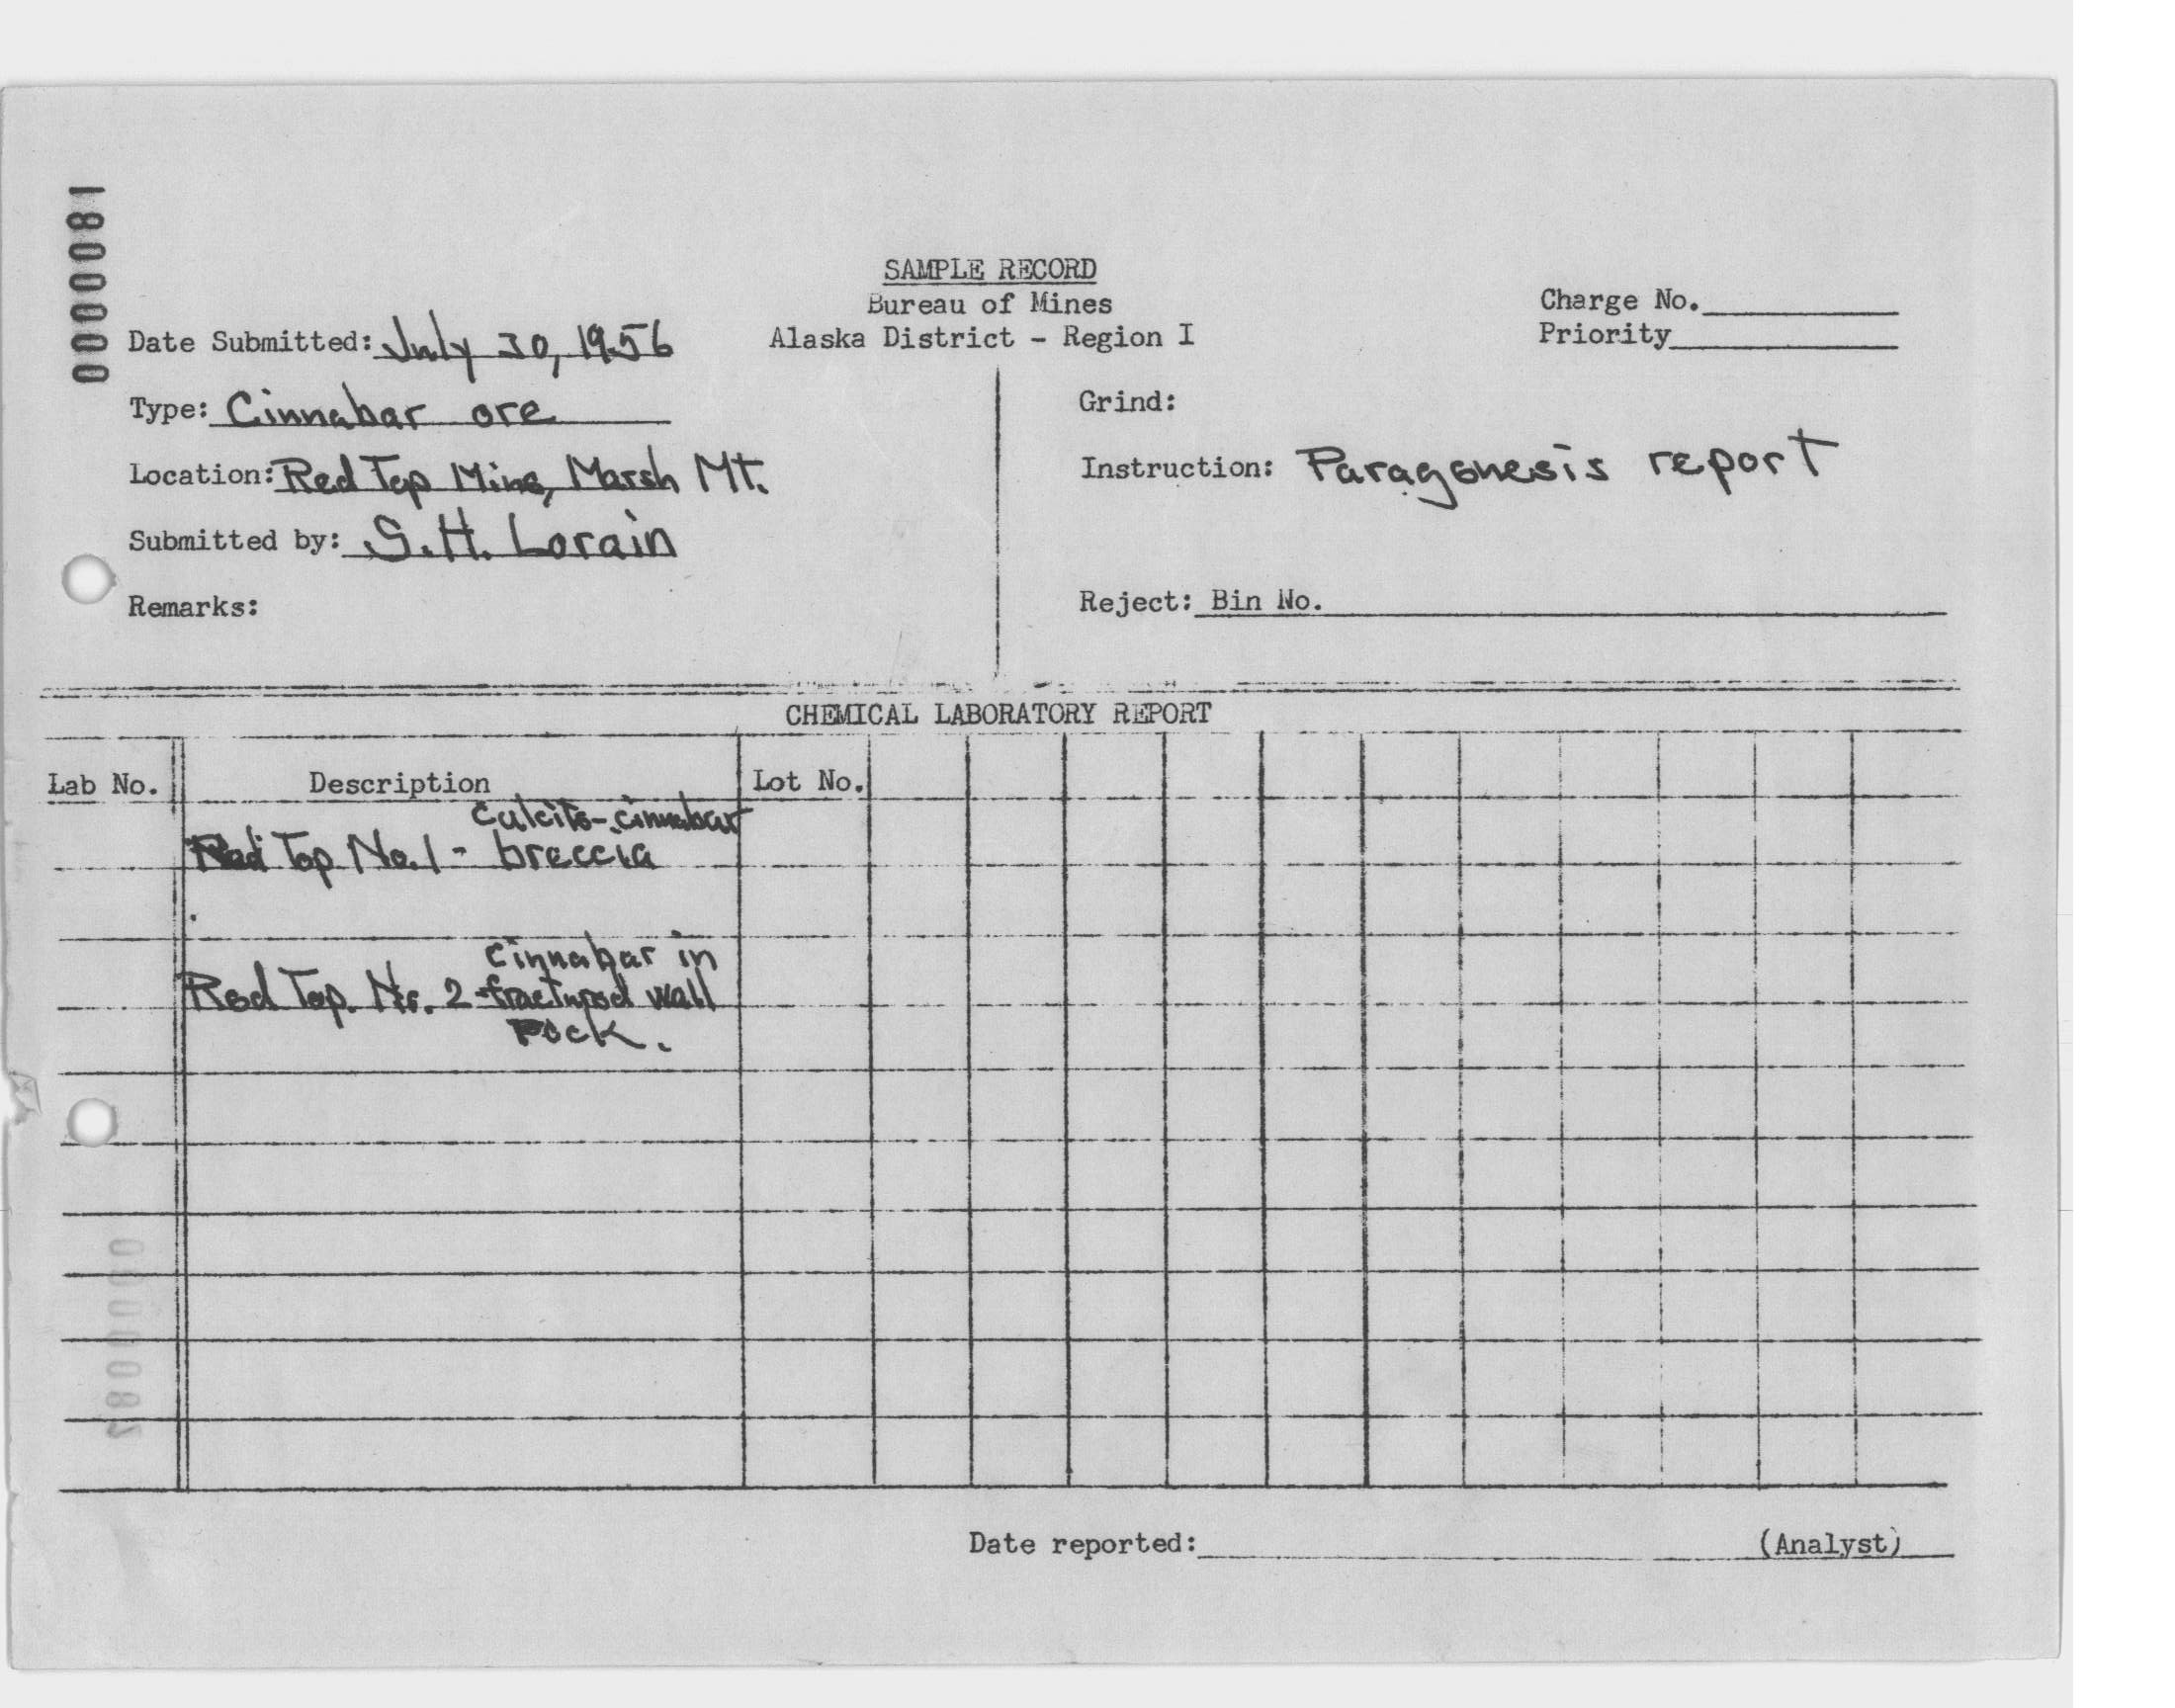 0000081
SAMPLE RECORD
Bureau of Mines
Alaska District - Region I
Charge No.
Priority
Date Submitted: July 30, 1956
Type: Cinnabar ore
Location: Red Top Mine, Marsh Mt.
Submitted by: S.H. Lorain
Remarks:
Grind:
Instruction: Paragenesis report
Reject: Bin No.
CHEMICAL LABORATORY REPORT
Lab No. Description Lot No.
Calcite-cinnabar
Red Top No. 1 - breccia
Cinnabar in
Red Top No. 2 - fractured wall
rock.
0000082
Date reported: (Analyst)